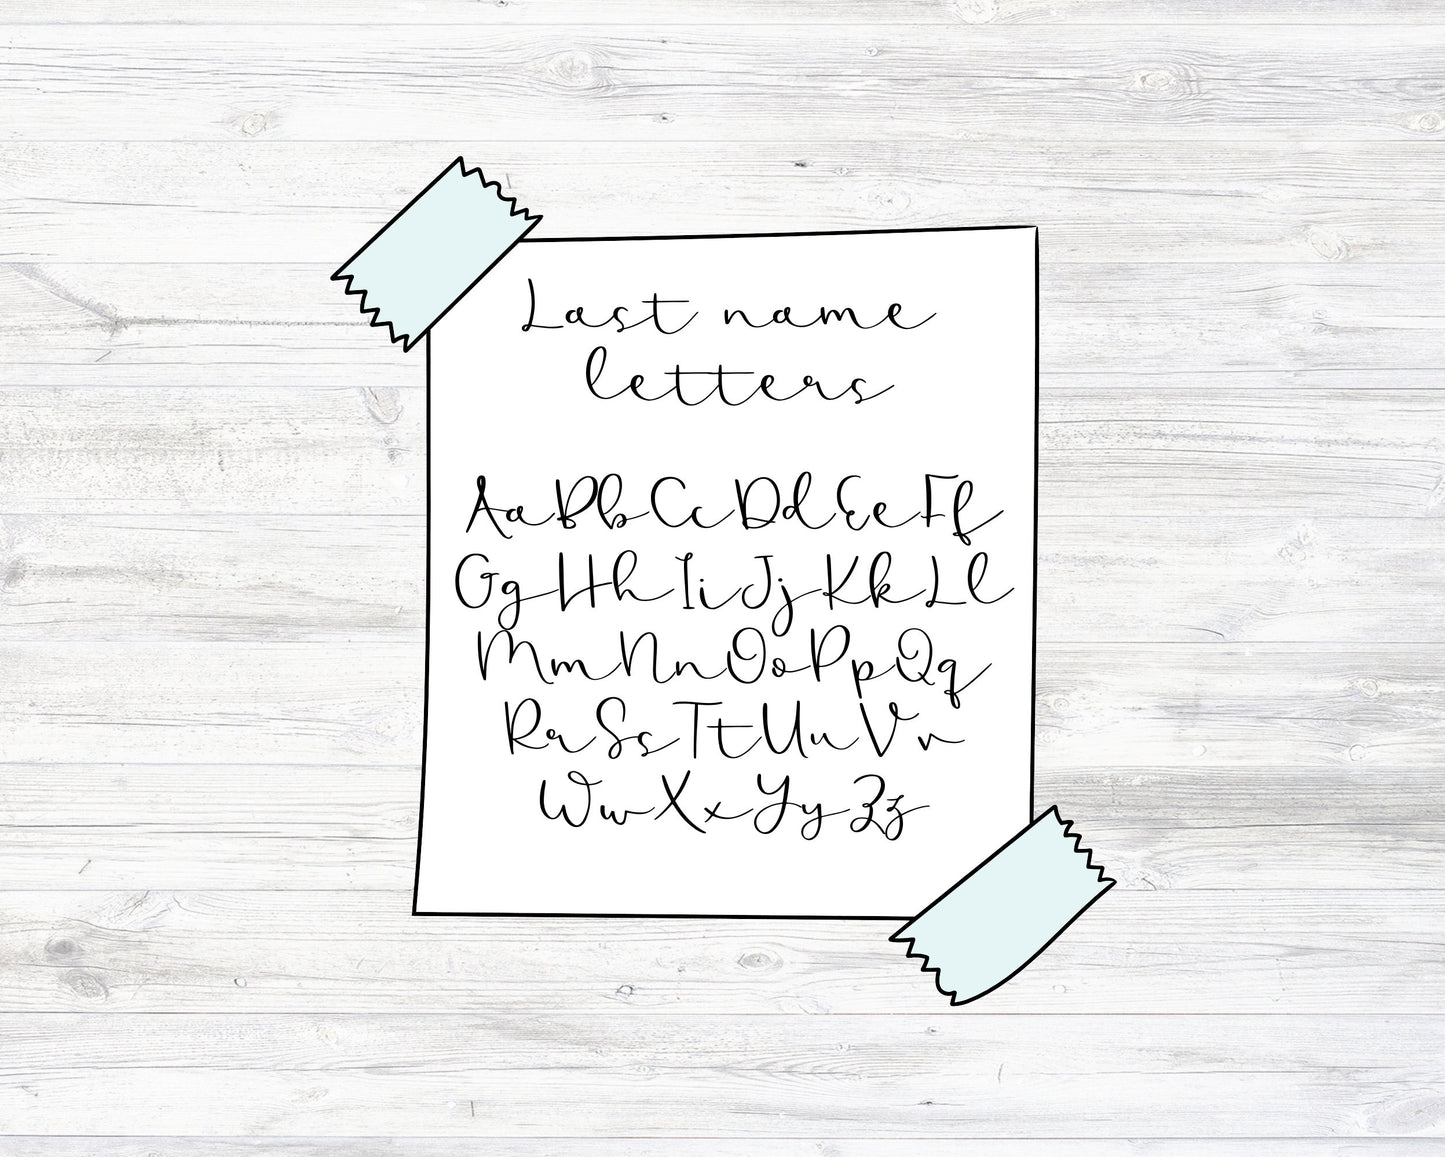 Last name
letters
AaBbCcDdEeFf
GgHhIiJjKkLl
MmNnOoPpQq
RrSsTtUuVv
WwXxYyZz